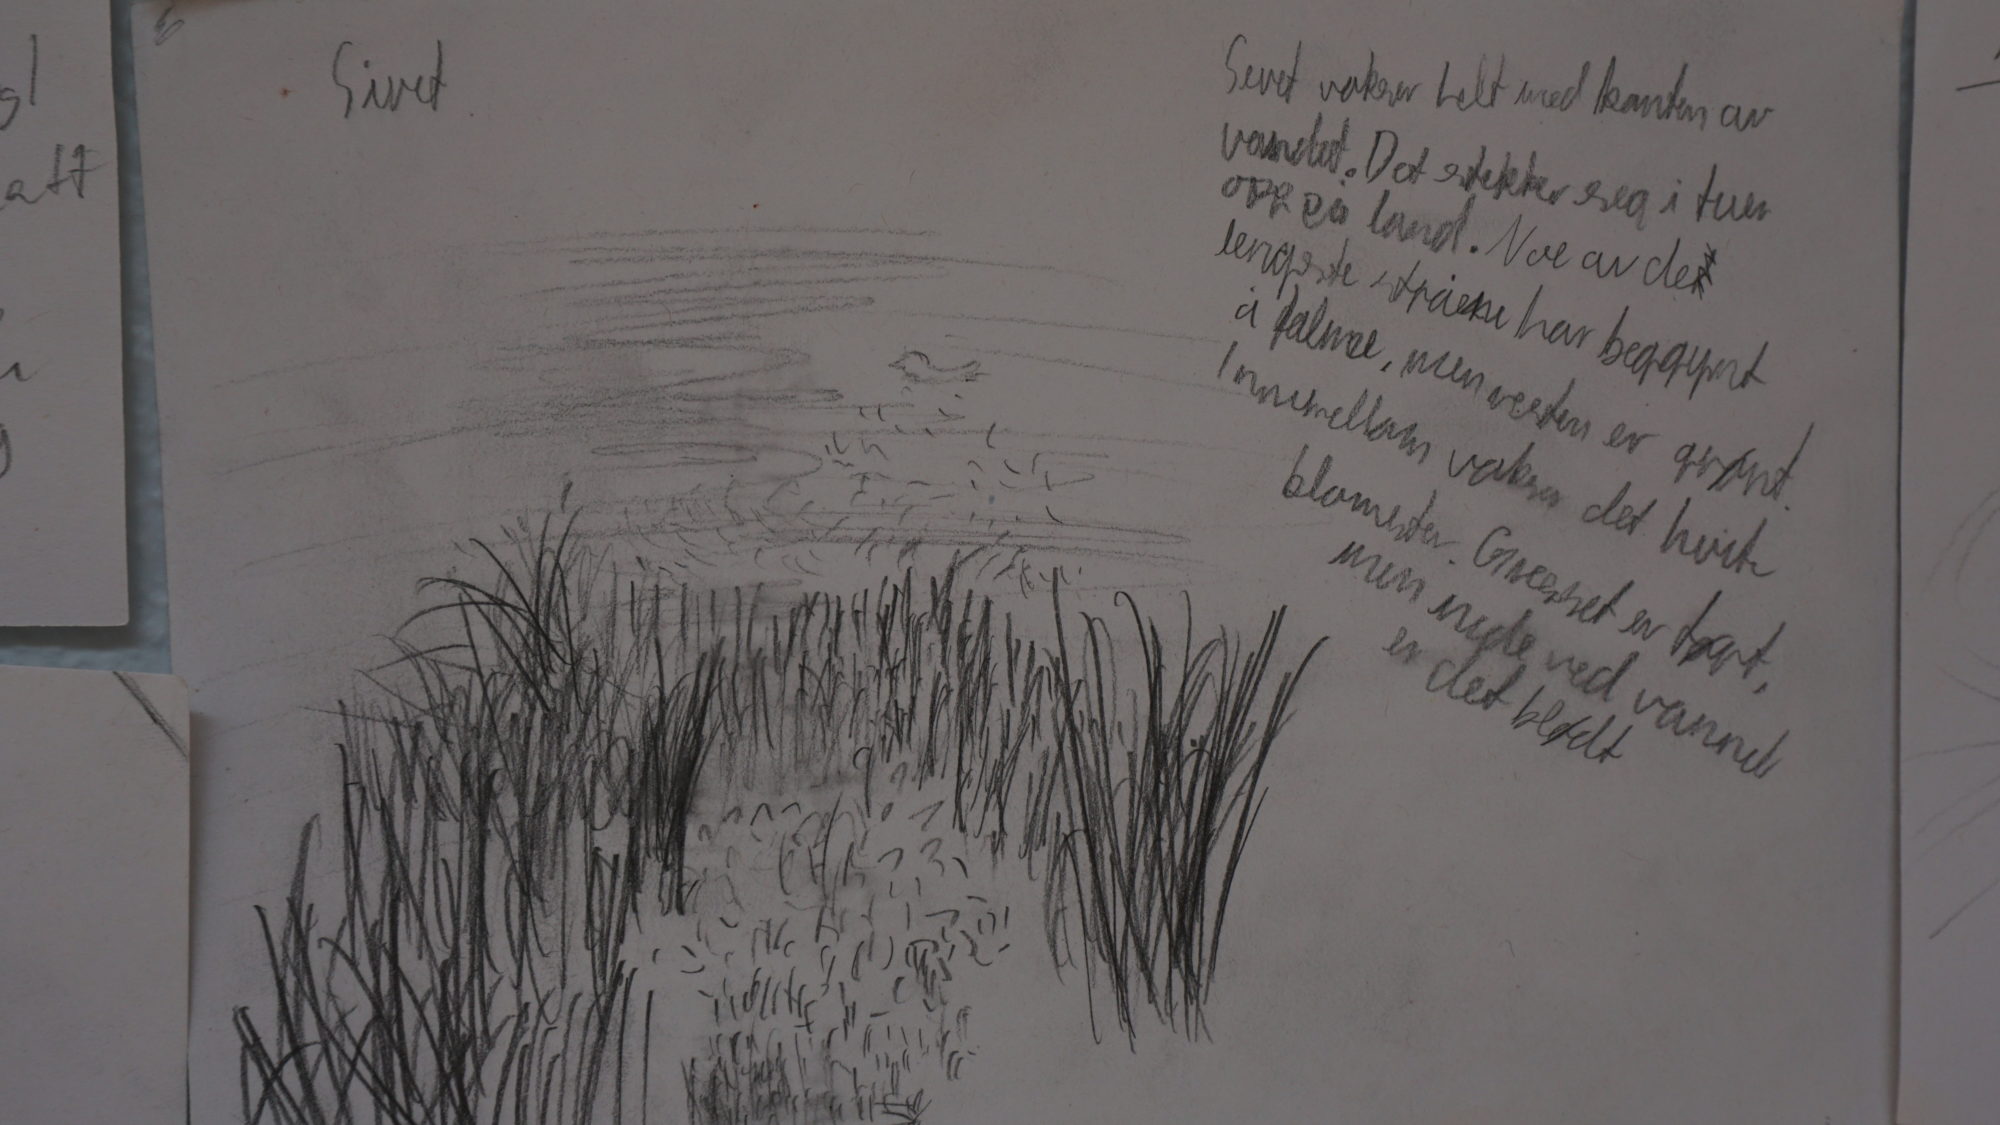 Sivet
Sevet vakser helt med kanten av
vandet. Det stekker seg i tuer
opp på land. Noe av det
lengste stråene har beggynt
å falme, men resten er grønt.
Innimellom vakser det hvite
blomster. Gresset er tørt,
men nede ved vannd
er det bløtt
gl
att